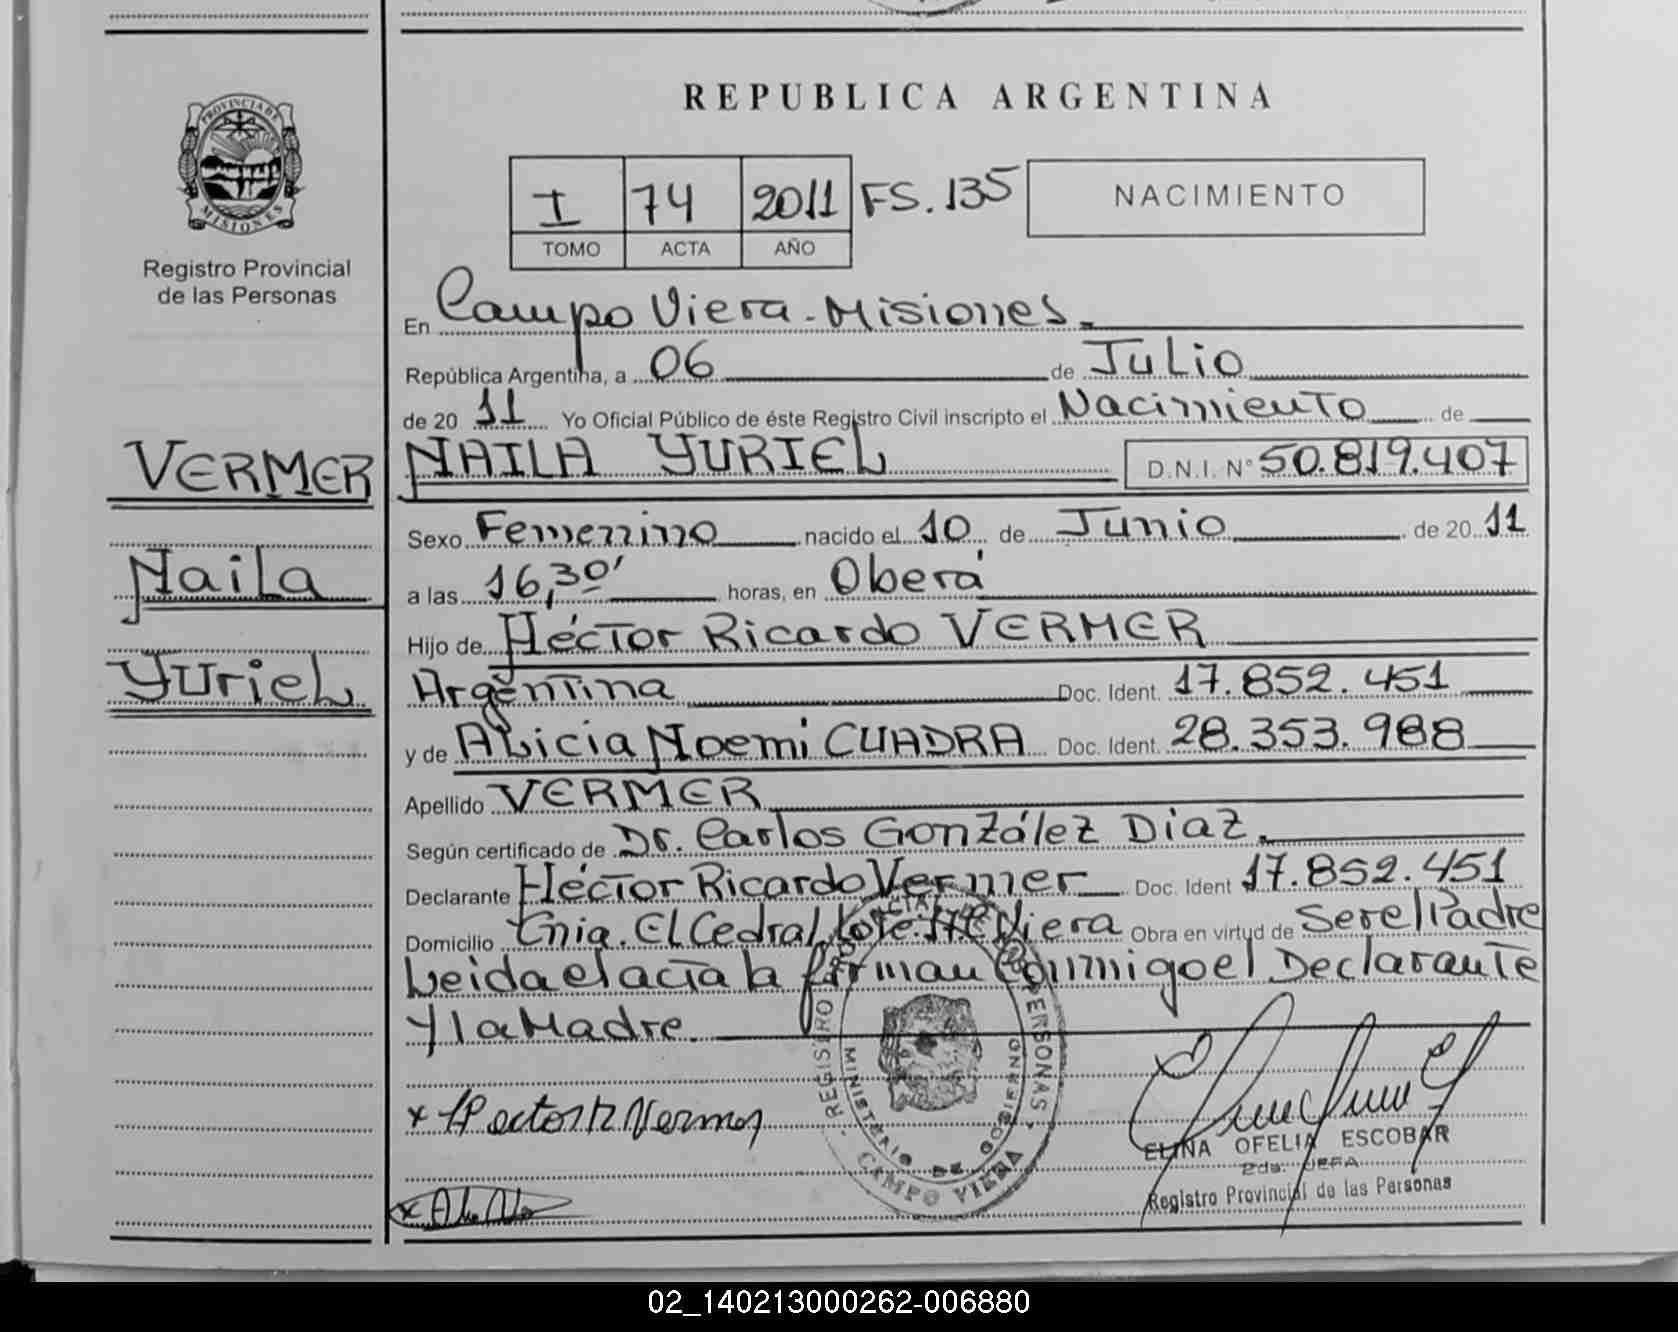 REPUBLICA ARGENTINA
PROVINCIA DE MISIONES
Registro Provincial
de las Personas
I 74 2011 FS. 135
TOMO ACTA AÑO
NACIMIENTO
En Campo Viera - Misiones.
República Argentina, a 06 de Julio
de 20 11 Yo Oficial Público de éste Registro Civil inscripto el Nacimiento de
VERMER
Naila
Yuriel
NAILA YURIEL D.N.I. N° 50.819.407
Sexo Femenino nacido el 10 de Junio de 20 11
a las 16,30' horas, en Oberá
Hijo de Héctor Ricardo VERMER
Argentina Doc. Ident. 17.852.451
y de Alicia Noemi CUADRA Doc. Ident. 28.353.988
Apellido VERMER
Según certificado de Dr. Carlos González Diaz.
Declarante Héctor Ricardo Vermer Doc. Ident 17.852.451
Domicilio Cnia. El Cedral Viera Obra en virtud de Ser el Padre
Leida el acta la firman Conmigo el Declarante
y la Madre.
REGISTRO PROVINCIAL DE LAS PERSONAS
MINISTERIO DE GOBIERNO
CAMPO VIERA
x Hector R Vermer
x
ELINA OFELIA ESCOBAR
2da. JEFA
Registro Provincial de las Personas
02_140213000262-006880